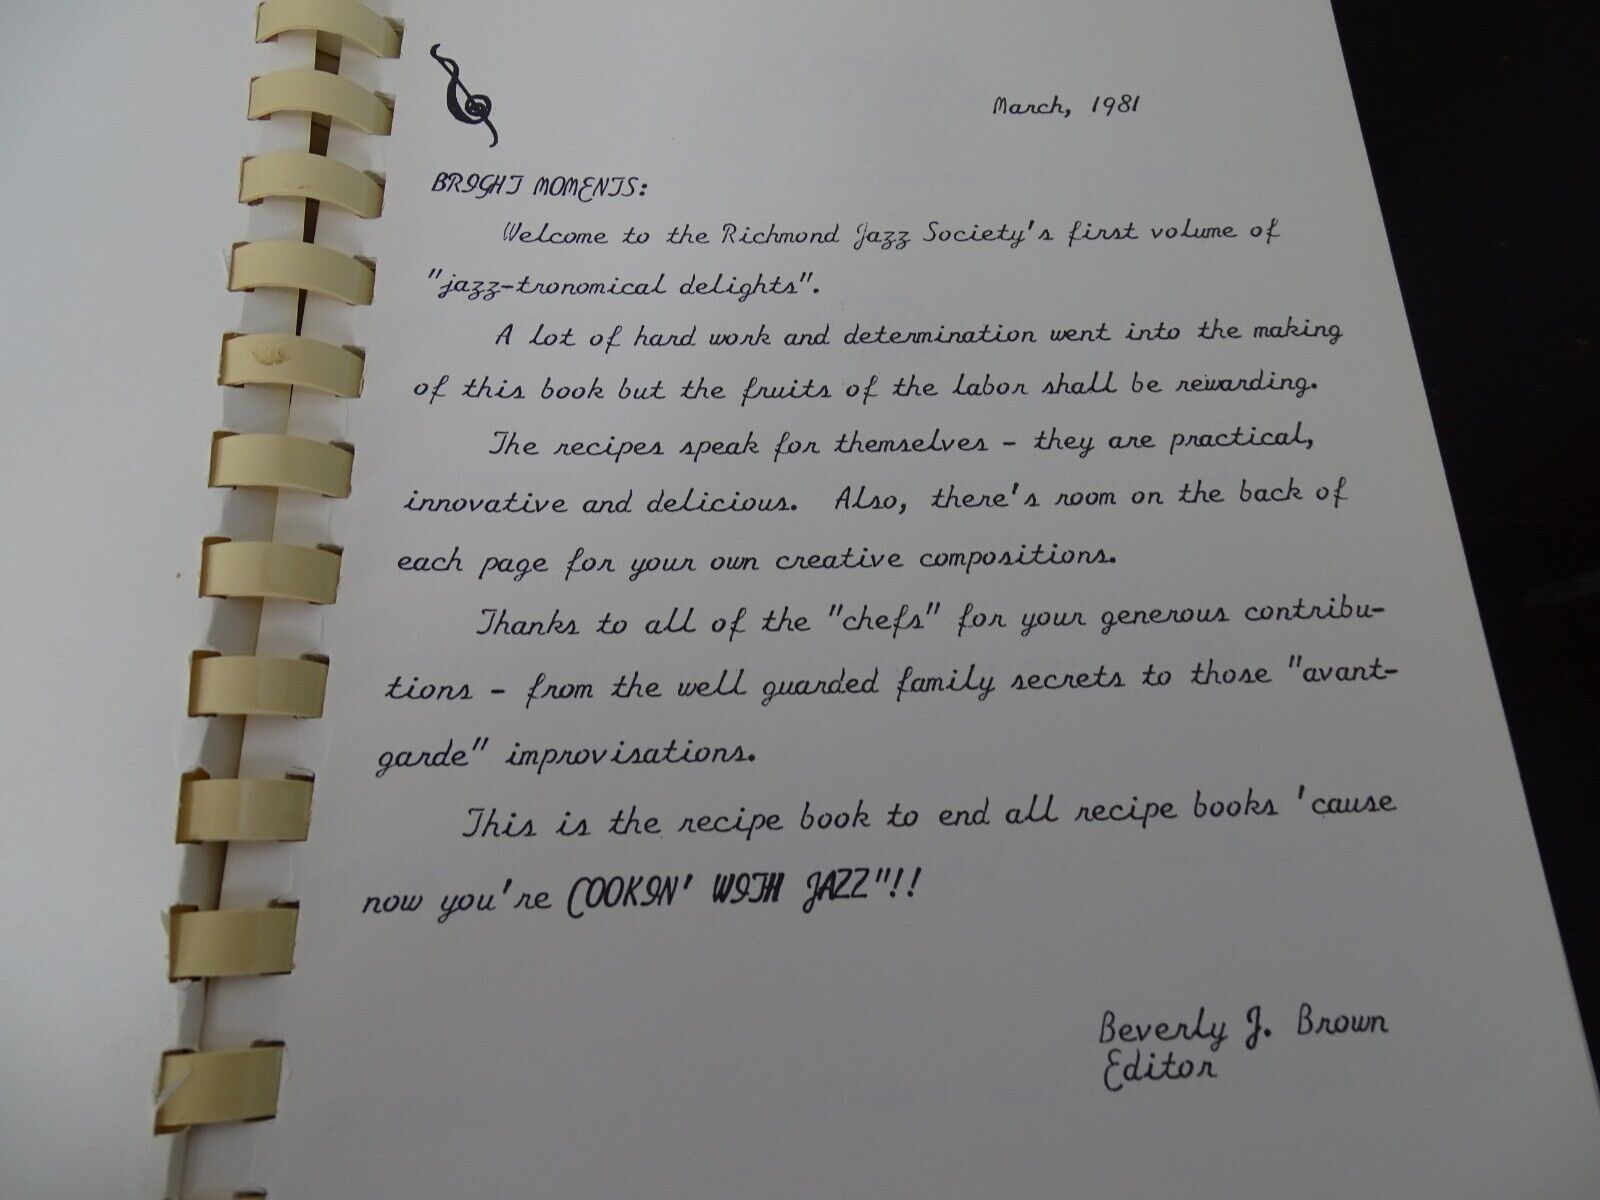 March, 1981
BRIGHT MOMENTS:
Welcome to the Richmond Jazz Society's first volume of
"jazz-tronomical delights".
A lot of hard work and determination went into the making
of this book but the fruits of the labor shall be rewarding.
The recipes speak for themselves - they are practical,
innovative and delicious. Also, there's room on the back of
each page for your own creative compositions.
Thanks to all of the "chefs" for your generous contribu-
tions - from the well guarded family secrets to those "avant-
garde" improvisations.
This is the recipe book to end all recipe books 'cause
now you're COOKIN' WITH JAZZ"!!
Beverly J. Brown
Editor